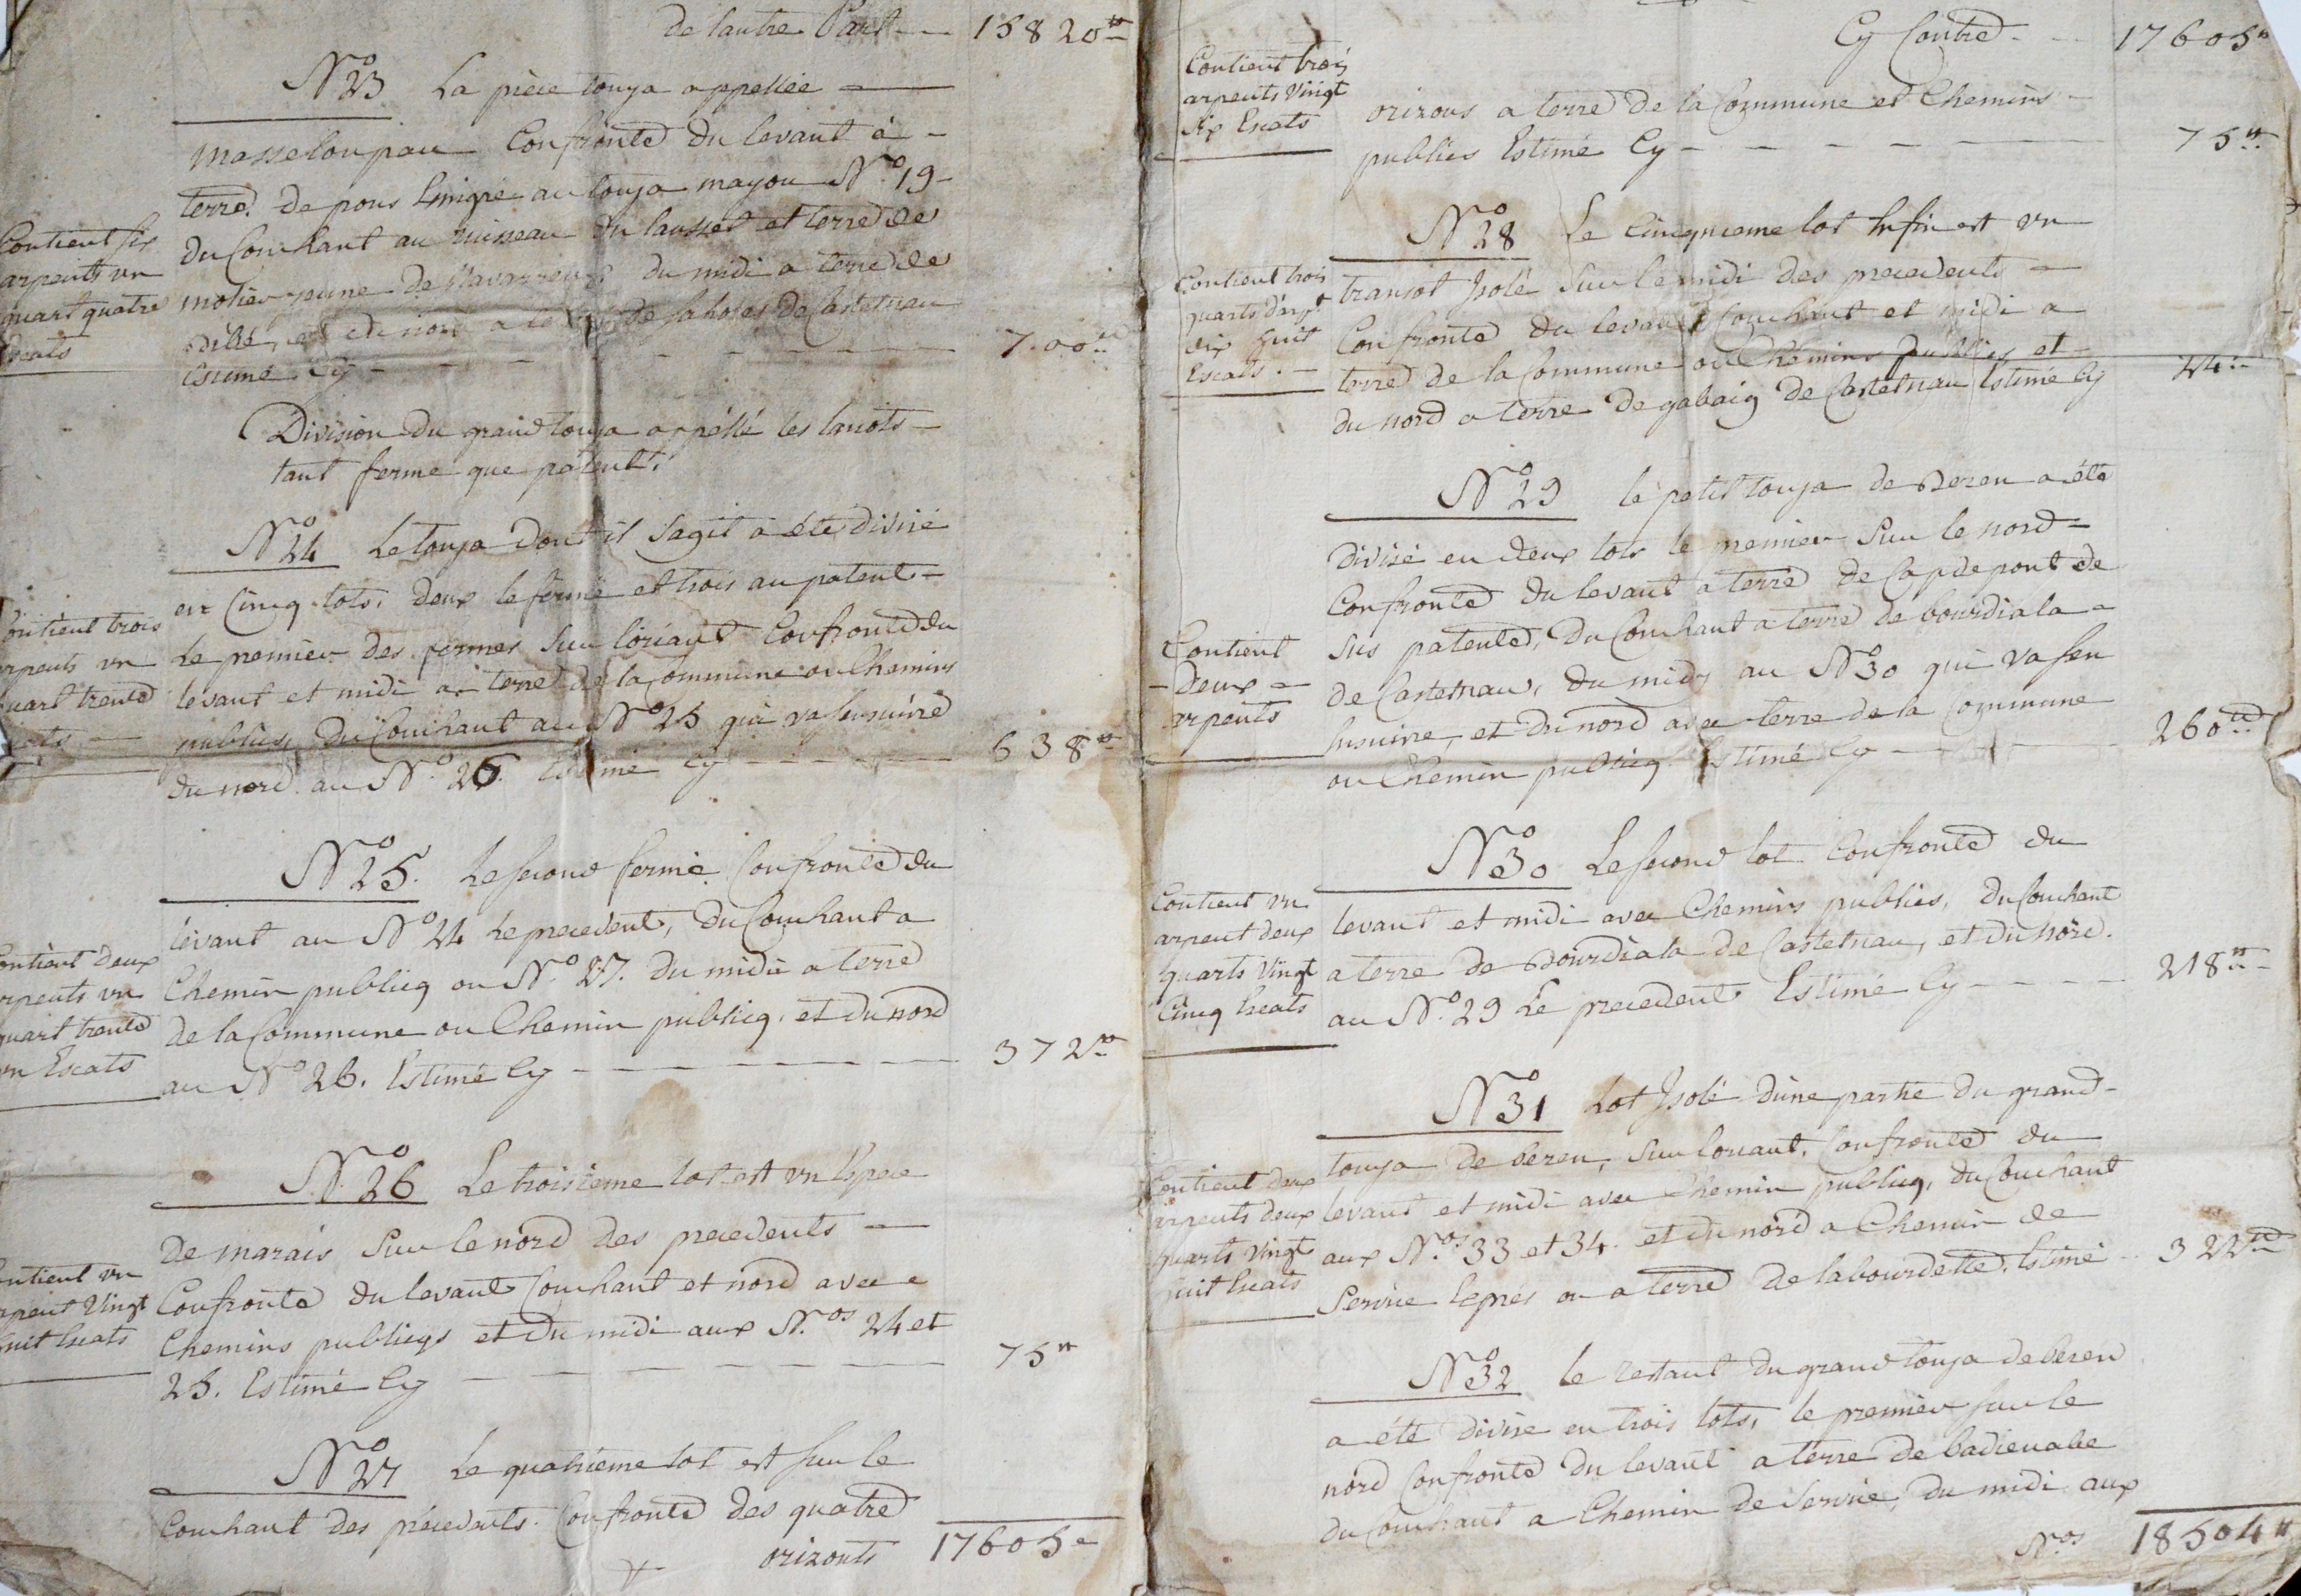 de lautre Part -- 15820 ₶
N.º 23 La pièce touya appellée
masseloupau Confronte du levant à
terre de pons Emigré au touya mayou N.º 19
du Couchant au ruisseau du lausset et terre de
motier jeune de Navarrenx du midi a terre de
dillé, et du nord a terre de sahores de Castetnau
Estimé Cy - - - 700 ₶
Contient six
arpents un
quart quatre
Escats
Division du grand touya appéllé les lanots
tant ferme que patent.
N.º 24 Le touya dont il sagit a été divisé
en Cinq lots, deux le fermé et trois au patent
Le premier des fermes Sur loriant Confronte du
levant et midi a terre de la Commune ou Chemins
publics, du Couchant au N.º 25 qui va sensuivre
du nord au N.º 26. Estimé Cy - - - 638 ₶
Contient trois
arpents un
quart trente
Escats
N.º 25. Le second fermé Confronte du
lévant au N.º 24 Le precedent, du Couchant a
Chemin publicq ou N.º 27. du midi a terre
de la Commune ou Chemin publicq, et du nord
au N.º 26. Estimé Cy - - - 372 ₶
Contient deux
arpents un
quart trente
un Escats
N.º 26 Le troisième lot est un Espece
de marais Sur le nord des precedents
Confronte du levant Couchant et nord avec
Chemins publicqs et du midi aux N.os 24 et
25. Estimé Cy - - - 75 ₶
Contient un
arpent Vingt
huit Escats
N.º 27 Le quatrième lot est sur le
Couchant des précédents. Confronte des quatre
orizonts 17605
Cy Contre - - 17605 ₶
orizons a terre de la Commune et Chemins
publics Estimé Cy - - - 75 ₶
Contient trois
arpents Vingt
six Escats
N.º 28 Le Cinquieme lot Enfin est un
transot Isolé Sur le midi des precedents
Confronte du levant Couchant et midi a
terre de la Commune ou Chemins publics et
du nord a terre de gabaig de Castetnau Estimé Cy 24 ₶
Contient trois
quarts d'arpt
dix huit
Escats.
N.º 29 le petit touya de Beren a été
Divisé en deux lots le premier Sur le nord
Confronte du levant a terre de Capdepont de
Sus patente, du Couchant a terre de bourdiala
de Castetnau, du midy au N.º 30 qui va sen
Ensuivre, et du nord avec terre de la Commune
ou Chemin publicq Estimé Cy - - - 260 ₶
Contient
deux
arpents
N.º 30 Le second lot Confronte du
levant et midi avec Chemins publics, du Couchant
a terre de Bourdiala de Castetnau, et du nord.
au N.º 29 Le precedent Estimé Cy - - - 218 ₶
Contient un
arpent deux
quarts Vingt
Cinq Escats
N.º 31 Lot Isolé dune partie du grand
touya de béren, Sur louant, Confronte du
levant et midi avec Chemin publicq, du Couchant
aux N.os 33 et 34. et du nord a Chemin de
Service leprès ou a terre de labourdette. Estimé - 322 ₶
Contient deux
arpents deux
quarts Vingt
huit Escats
N.º 32 le restant du grand touya de béren
a été divisé en trois lots, le premier sur le
nord Confronte du levant a terre de badienabe
du Couchant a Chemin de Service, du midi aux
N.os 18504 ₶